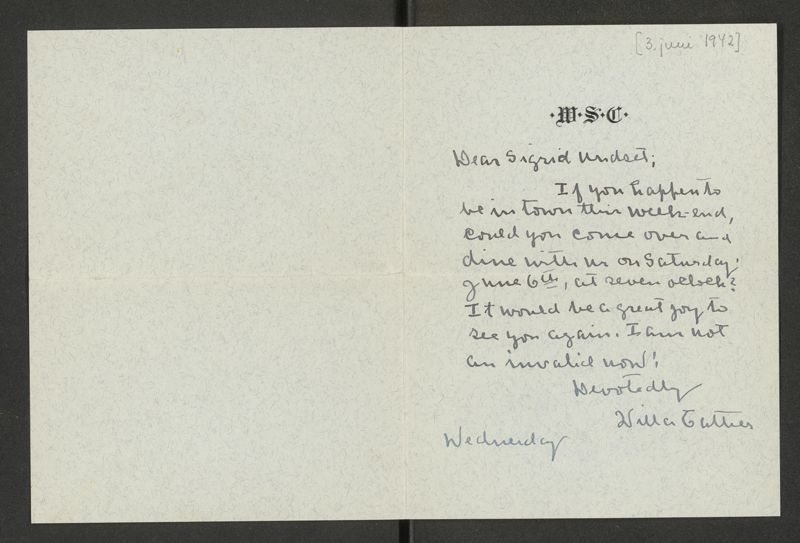 [3. juni 1942]
·W·S·C·
Dear Sigrid Undset;
If you happen to
be in town this week-end,
could you come over and
dine with us on Saturday,
June 6th, at seven oclock?
It would be a great joy to
see you again. I am not
an invalid now!
Devotedly
Willa Cather
Wednesday